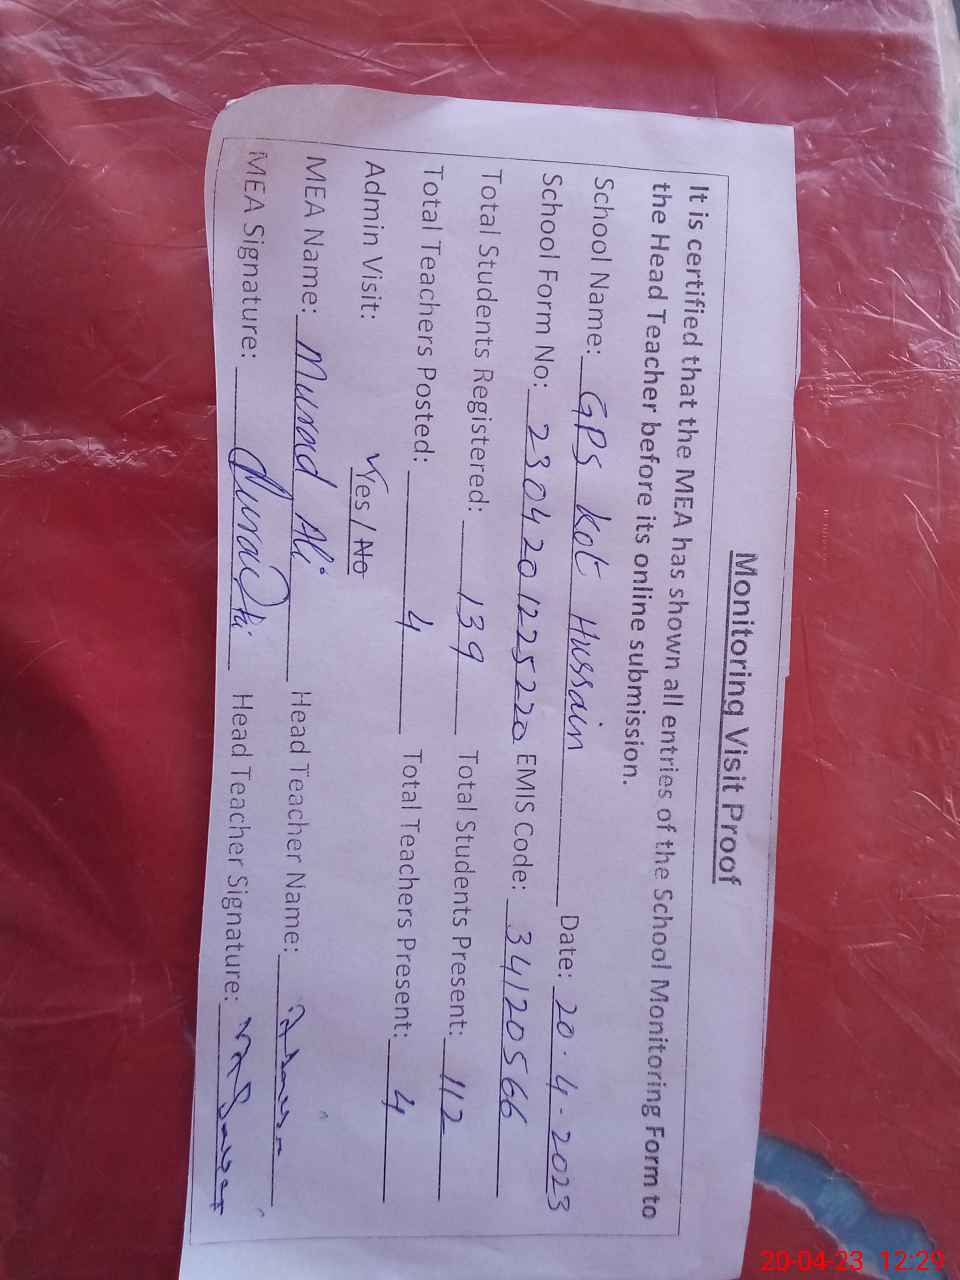 Monitoring Visit Proof
It is certified that the MEA has shown all entries of the School Monitoring Form to
the Head Teacher before its online submission.
School Name: GPS Kot Hussain Date: 20.4-2023
School Form No: 2304201225220 EMIS Code: 34120566
Total Students Registered: 139 Total Students Present: 112
Total Teachers Posted: 4 Total Teachers Present: 4
Admin Visit: Yes / No
MEA Name: Murad Ali Head Teacher Name:
MEA Signature: Murad Ali Head Teacher Signature:
20-04-23 12:29